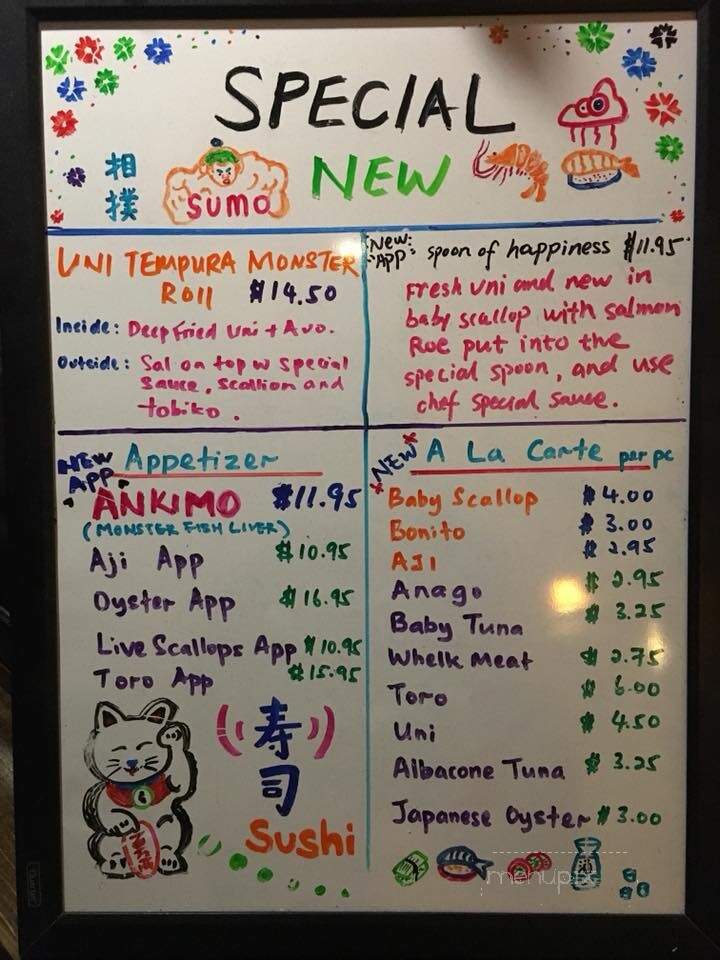 SPECIAL
相撲
SUMO
NEW
UNI TEMPURA MONSTER
Roll $14.50
Inside: Deep Fried Uni + Avo.
Outside: Sal on top w special
sauce, scallion and
tobiko.
New
App
spoon of happiness $11.95
Fresh uni and new in
baby scallop with salmon
Roe put into the
special spoon, and use
chef special sauce.
NEW
APP
Appetizer
ANKIMO $11.95
(MONSTER FISH LIVER)
Aji App $10.95
Oyster App $16.95
Live Scallops App $10.95
Toro App $15.95
寿司
Sushi
NEW
A La Carte per pc
Baby Scallop $4.00
Bonito $3.00
AJI $2.95
Anago $2.95
Baby Tuna $3.25
Whelk Meat $2.75
Toro $6.00
Uni $4.50
Albacone Tuna $3.25
Japanese Oyster $3.00
酒
menupix